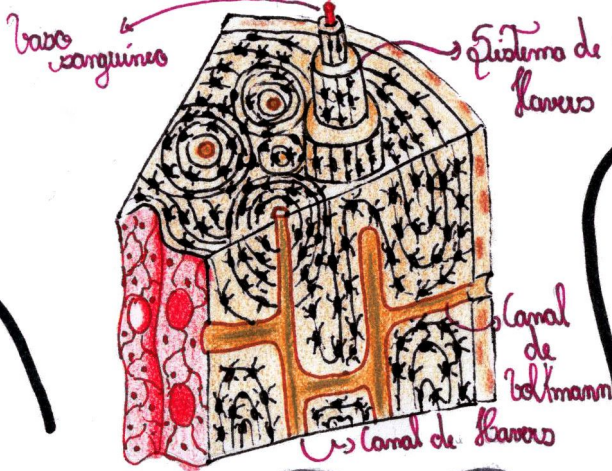 Vaso
sanguíneo
Sistema de
Havers
Canal
de
Volkmann
Canal de Havers